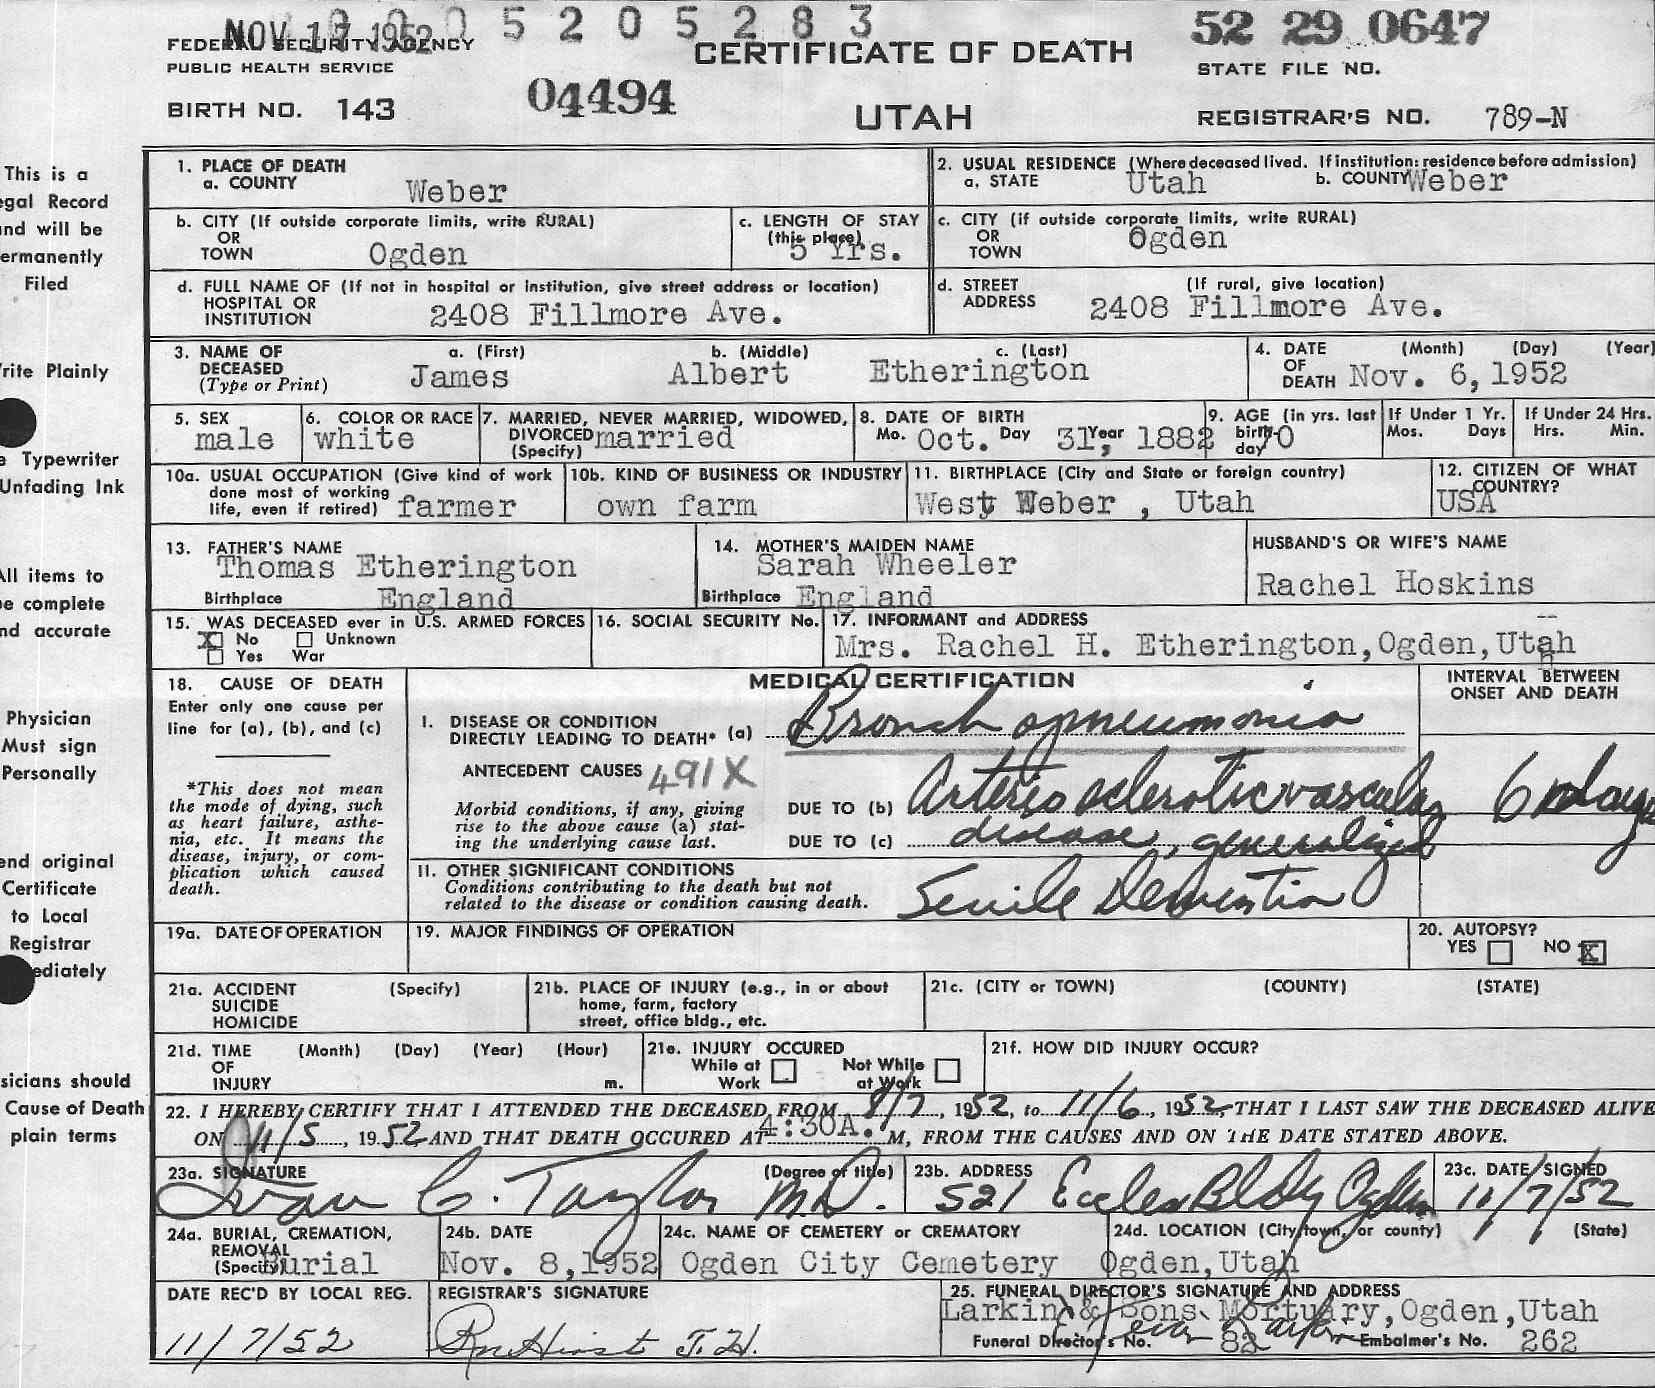 NOV 17 1952 5 2 0 5 2 8 3
52 29 0647
FEDERAL SECURITY AGENCY
PUBLIC HEALTH SERVICE
CERTIFICATE OF DEATH
STATE FILE NO.
BIRTH NO. 143
04494
UTAH
REGISTRAR'S NO. 789-N
This is a
egal Record
nd will be
ermanently
Filed
rite Plainly
e Typewriter
Unfading Ink
All items to
be complete
nd accurate
Physician
Must sign
Personally
end original
Certificate
to Local
Registrar
ediately
sicians should
Cause of Death
plain terms
1. PLACE OF DEATH
a. COUNTY Weber
2. USUAL RESIDENCE (Where deceased lived. If institution: residence before admission)
a. STATE Utah b. COUNTY Weber
b. CITY (If outside corporate limits, write RURAL)
OR
TOWN Ogden
c. LENGTH OF STAY
(this place)
5 Yrs.
c. CITY (if outside corporate limits, write RURAL)
OR
TOWN Ogden
d. FULL NAME OF (If not in hospital or institution, give street address or location)
HOSPITAL OR
INSTITUTION 2408 Fillmore Ave.
d. STREET (If rural, give location)
ADDRESS 2408 Fillmore Ave.
3. NAME OF
DECEASED
(Type or Print)
a. (First) b. (Middle) c. (Last)
James Albert Etherington
4. DATE (Month) (Day) (Year)
OF
DEATH Nov. 6, 1952
5. SEX
male
6. COLOR OR RACE
white
7. MARRIED, NEVER MARRIED, WIDOWED,
DIVORCED married
(Specify)
8. DATE OF BIRTH
Mo. Oct. Day 31, Year 1882
9. AGE (in yrs. last
birth
day 70
If Under 1 Yr.
Mos. Days
If Under 24 Hrs.
Hrs. Min.
10a. USUAL OCCUPATION (Give kind of work
done most of working
life, even if retired) farmer
10b. KIND OF BUSINESS OR INDUSTRY
own farm
11. BIRTHPLACE (City and State or foreign country)
West Weber , Utah
12. CITIZEN OF WHAT
COUNTRY?
USA
13. FATHER'S NAME
Thomas Etherington
Birthplace England
14. MOTHER'S MAIDEN NAME
Sarah Wheeler
Birthplace England
HUSBAND'S OR WIFE'S NAME
Rachel Hoskins
15. WAS DECEASED ever in U.S. ARMED FORCES
X No Unknown
Yes War
16. SOCIAL SECURITY No.
17. INFORMANT and ADDRESS --
Mrs. Rachel H. Etherington, Ogden, Utah
18. CAUSE OF DEATH
Enter only one cause per
line for (a), (b), and (c)
*This does not mean
the mode of dying, such
as heart failure, asthe-
nia, etc. It means the
disease, injury, or com-
plication which caused
death.
MEDICAL CERTIFICATION
INTERVAL BETWEEN
ONSET AND DEATH
I. DISEASE OR CONDITION
DIRECTLY LEADING TO DEATH* (a) Bronchopneumonia
ANTECEDENT CAUSES 491X
Morbid conditions, if any, giving
rise to the above cause (a) stat-
ing the underlying cause last.
DUE TO (b) Arteriosclerotic vascular
DUE TO (c) disease, generalized
6
II. OTHER SIGNIFICANT CONDITIONS
Conditions contributing to the death but not
related to the disease or condition causing death.
Senile Dementia
19a. DATE OF OPERATION
19. MAJOR FINDINGS OF OPERATION
20. AUTOPSY?
YES NO X
21a. ACCIDENT (Specify)
SUICIDE
HOMICIDE
21b. PLACE OF INJURY (e.g., in or about
home, farm, factory
street, office bldg., etc.
21c. (CITY or TOWN) (COUNTY) (STATE)
21d. TIME (Month) (Day) (Year) (Hour)
OF
INJURY m.
21e. INJURY OCCURED
While at Not While
Work at Work
21f. HOW DID INJURY OCCUR?
22. I HEREBY CERTIFY THAT I ATTENDED THE DECEASED FROM 8/7, 1952, to 11/6, 1952 THAT I LAST SAW THE DECEASED ALIVE
ON 11/5, 1952 AND THAT DEATH OCCURED AT 4:30A. M, FROM THE CAUSES AND ON THE DATE STATED ABOVE.
23a. SIGNATURE (Degree or title)
Ivan C. Taylor M.D.
23b. ADDRESS
521 Eccles Bldg Ogden
23c. DATE SIGNED
11/7/52
24a. BURIAL, CREMATION,
REMOVAL
(Specify) Burial
24b. DATE
Nov. 8, 1952
24c. NAME OF CEMETERY or CREMATORY
Ogden City Cemetery
24d. LOCATION (City, town, or county) (State)
Ogden, Utah
DATE REC'D BY LOCAL REG.
11/7/52
REGISTRAR'S SIGNATURE
25. FUNERAL DIRECTOR'S SIGNATURE AND ADDRESS
Larkin & Sons Mortuary, Ogden, Utah
Funeral Director's No. 82 Embalmer's No. 262